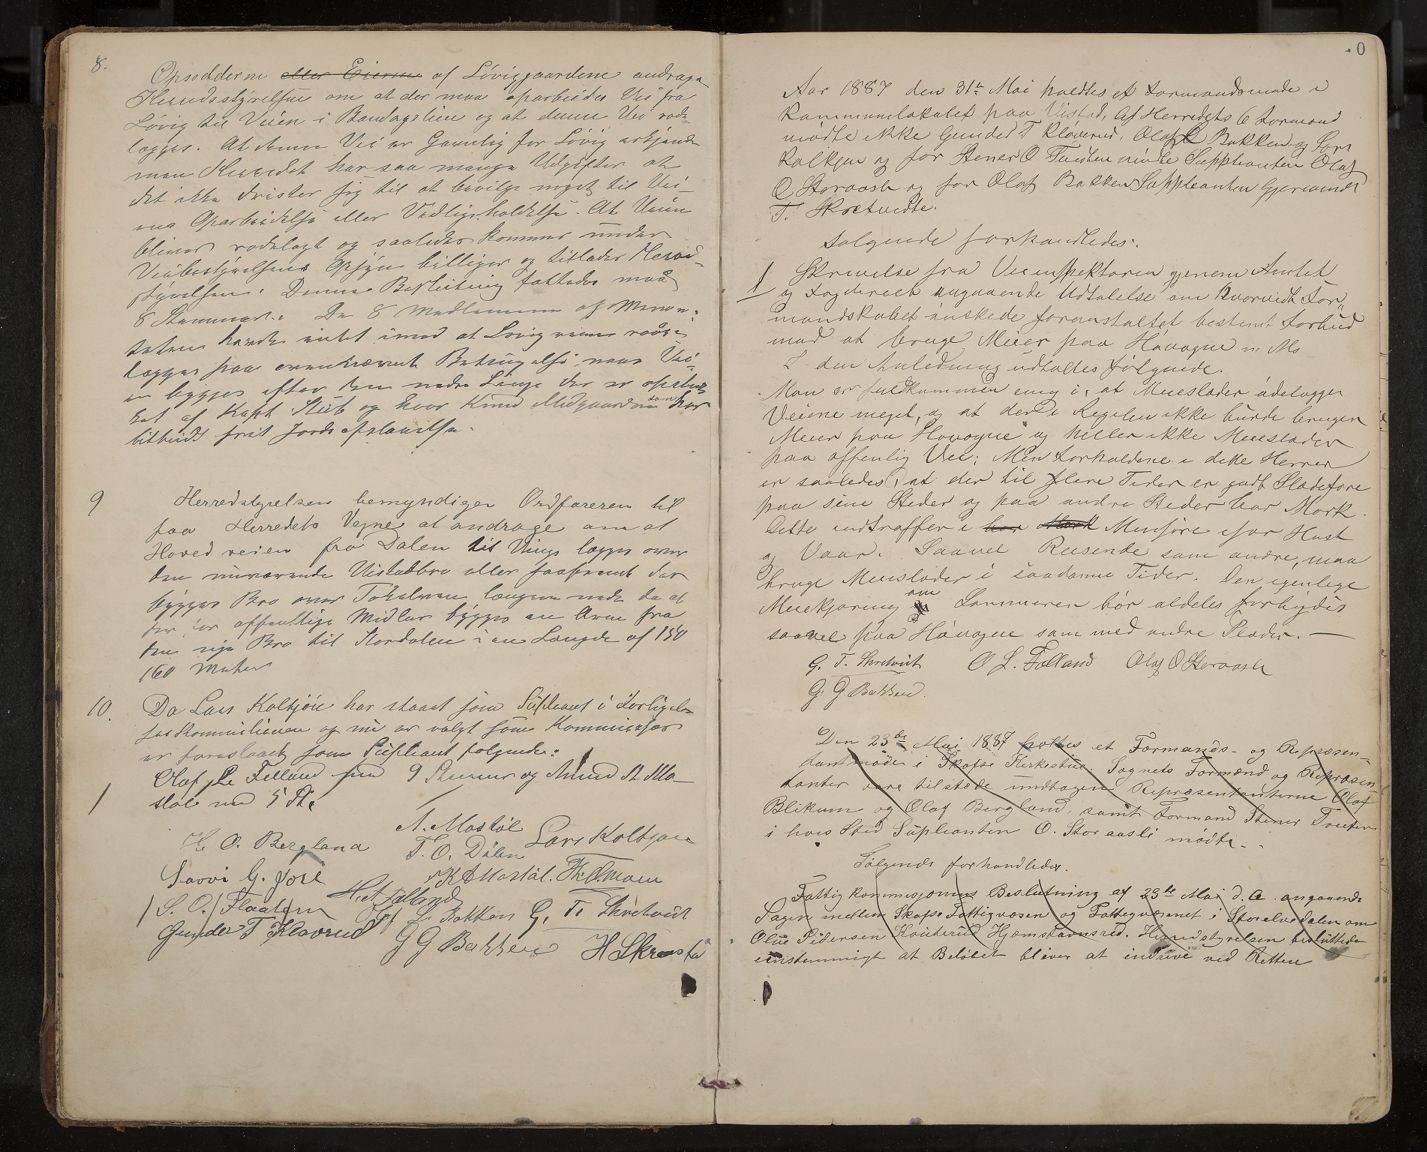 8. Opsidderne eller Eierne af Løviggaardene andrager
Herredsstyrelsen om at der maa oparbeides Vei fra
Løvig til Veien i Bandagslien og at denne Vei rode-
lægges. At denne Vei er Gavnlig for Løvig erkjender
man Herredet har saa mange Udgifter at
det ikke drister sig til at bevilge noget til Vei-
ens Oparbeidelse eller Vedligeholdelse. At Veien
bliver rodelagt og saaledes kommer under
Veibestyrelsens Opsyn billiger og tillader Herred-
styrelsen. Denne Beslutning fattedes med
8 Stemmer. De 8 Medlemmer af Minori-
teten havde intet imod at Løvigveien rode-
lægges paa ovennævnte Betingelse naar Vei-
en bygges efter den nedre Linje der er opstuk-
ket af Kapt Stub og hvor Knud Midgaarden har
tilbudt frit Jords afstaaelse.
9 Herredstyrelsen bemyndiger Ordføreren til
paa Herredets Vegne at andrage om at
Hovedveien fra Dalen til Vinje lægges over
den nuværende Vistadbro eller saafremt der
bygges Bro over Tokeleven længere nede da at
der for offentlige Midler bygges en Arm fra
den nye Bro til Stordalen i en Længde af 150
160 Meter
10. Da Lars Kolkjøn har staaet som Supleant i Forligel-
seskommissionen og nu er valgt som Kommissær
er foreslaaet som Supleant følgende:
1 Olaf L. Felland med 9 Stemmer og Amund A. Mo-
støl med 5 St.
H. O. Bergland A. Mostøl Lars Kolkjøn
T. O. Dalen
Sovi G. Jore K A Mostøl. K. O. Moen
S. O. Flaaten H. A. Felland L. Bakken G. T. Skretveit
Gunder T Klovrud G G Bakken H Skrenstø
0
Aar 1887 den 31te Mai holdtes et Formandsmøde i
Kommunelokalet paa Vistad. Af Herredets 6 Formænd
mødte ikke Gunder T Kloverud, Olaf L Bakken og Lars
Kolkjøn og for Stener O Tveiten mødte Suppleanten Olaf
O Storaasli og for Olaf Bakken Suppleanten Gjermund
T. Skretveite.
Følgende forhandledes:
1 Skrivelse fra Veiinspektøren gjennem Amtet
og Fogderiet angaaende Udtalelse om hvorvidt For-
mandskabet ønskede foranstaltet bestemt Forbud
mod at bruge Meier paa Høvogne m. M.
I den Anledning udtaltes følgende.
Man er fuldkommen enig i, at Meieslæder ødelægger
Veiene meget, og at der i Regelen ikke burde bruges
Meier paa Høvogne og heller ikke Meieslæder
paa offentlig Vei; Men Forholdene i dette Herred
er saaledes, at der til flere Tider er godt Slædeføre
paa sine Steder og paa andre Steder bar Mark.
Dette indtræffer i bar Mark Menføre især Høst
og Vaar. Saavel Reisende som andre, maa
bruge Meieslæder i saadanne Tider. Den egentlige
Meiekjøring om Sommeren bør aldeles forbydes
saavel paa Høvogne som med andre Slæder. —
G. T. Skretveit O L. Felland Olaf O Storaasli
G. G Bakken.
Den 23de Mai 1887 holtes et Formands- og Repræsen-
tantmøde i Skafse Kirkestue. Sognets Formænd og Repræsen-
tanter vare tilstede undtagen Repræsentanterne Olaf
Blikum og Olaf Bergland, samt Formand Stener Tveiten
i hvis Sted Supleanten O. Storaasli mødte. -
Følgende forhandledes.
Fattigkommisjonens Beslutning af 23de Mai d. A. angaaende
Sagen mellem Skafse Fattigvæsen og Fattigvæsenet i Sparelvedalen om
Olav Pedersen Kouterud Hjæmstavnsred. Herredstyrelsen besluttede
eenstemmigt at Beløbet bliver at indrive ved Retten